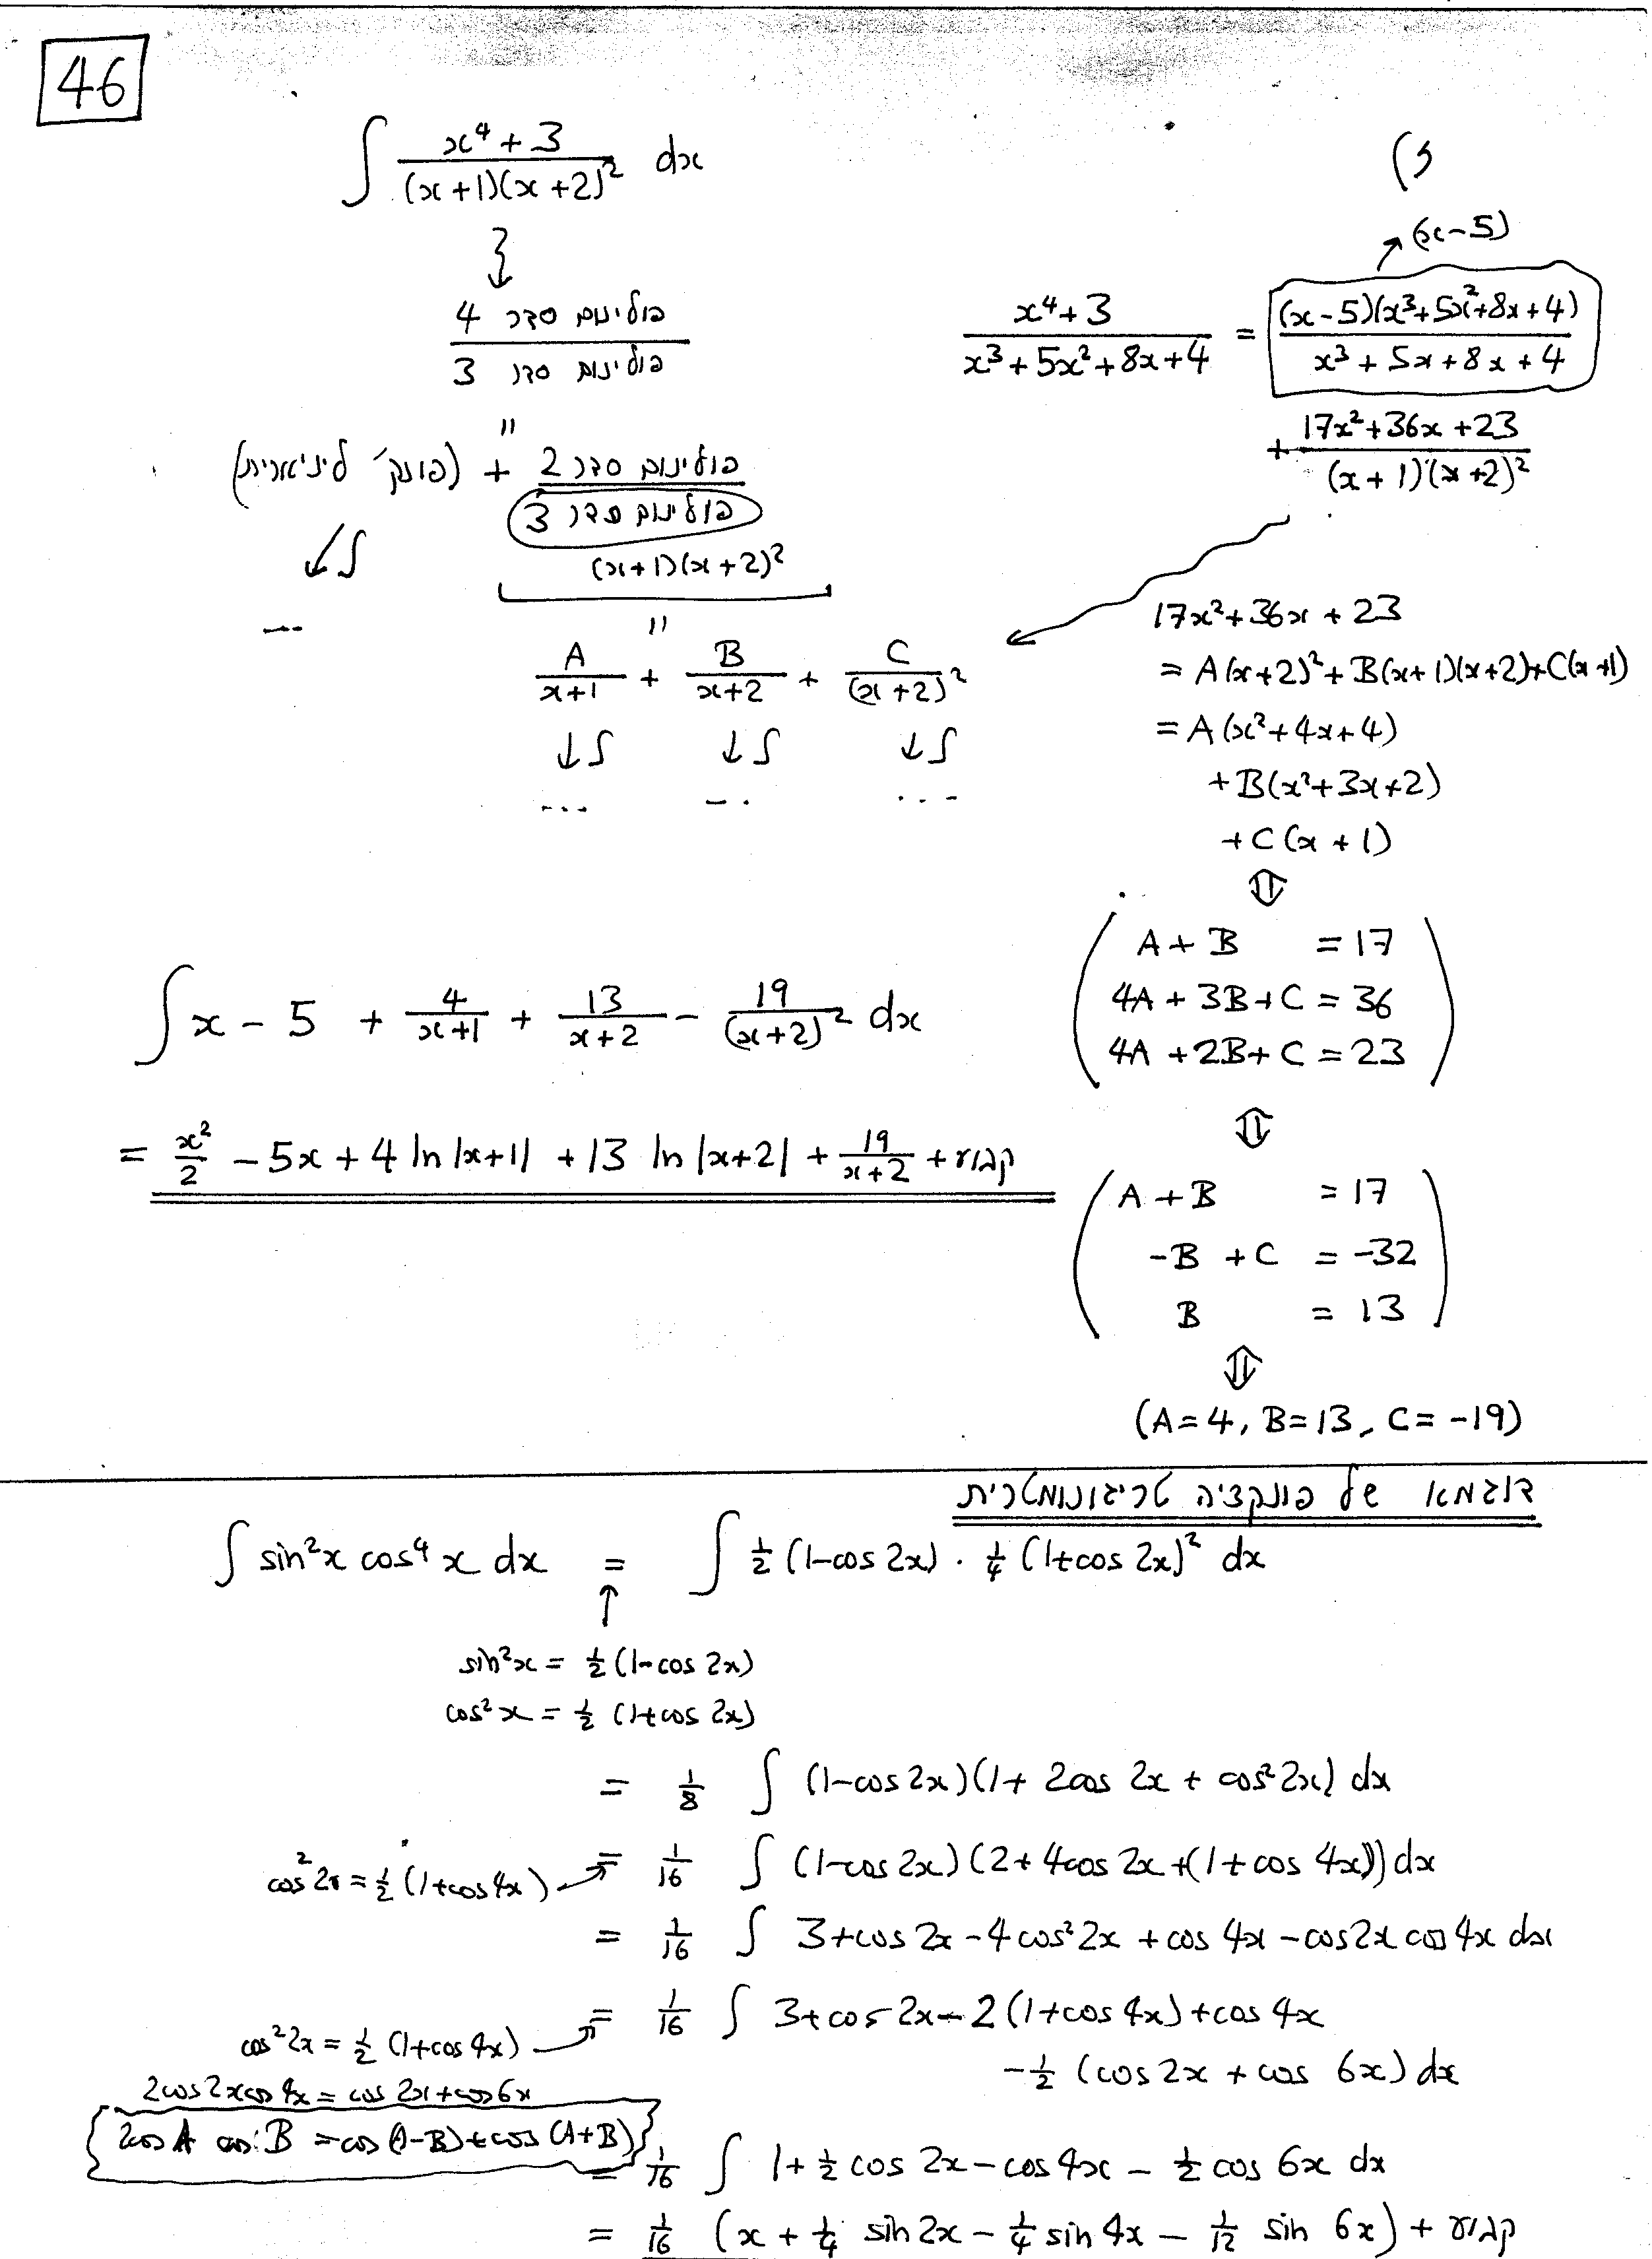 46
∫ (x⁴ + 3)/((x+1)(x+2)²) dx
(3
פולינום סדר 4 / פולינום סדר 3
"
(פונק' ליניארית) + פולינום סדר 2 / פולינום סדר 3
(x+1)(x+2)²
↙∫
...
"
A/(x+1) + B/(x+2) + C/(x+2)²
↓∫ ↓∫ ↓∫
... ... ...
↗ (x-5)
(x⁴+3)/(x³+5x²+8x+4) = (x-5)(x³+5x²+8x+4)/(x³+5x+8x+4)
+ (17x²+36x+23)/((x+1)(x+2)²)
17x²+36x+23
= A(x+2)² + B(x+1)(x+2) + C(x+1)
= A(x²+4x+4)
+ B(x²+3x+2)
+ C(x+1)
⇕
A + B = 17
4A + 3B + C = 36
4A + 2B + C = 23
⇕
A + B = 17
-B + C = -32
B = 13
⇕
(A=4, B=13, C=-19)
∫ x - 5 + 4/(x+1) + 13/(x+2) - 19/(x+2)² dx
= x²/2 - 5x + 4 ln|x+1| + 13 ln|x+2| + 19/(x+2) + קבוע
דוגמא של פונקציה טריגונומטרית
∫ sin²x cos⁴x dx = ∫ ½(1-cos 2x) · ¼(1+cos 2x)² dx
↑
sin²x = ½(1-cos 2x)
cos²x = ½(1+cos 2x)
= 1/8 ∫ (1-cos 2x)(1 + 2cos 2x + cos² 2x) dx
cos² 2x = ½(1+cos 4x) → = 1/16 ∫ (1-cos 2x)(2+4cos 2x+(1+cos 4x)) dx
= 1/16 ∫ 3+cos 2x - 4cos² 2x + cos 4x - cos 2x cos 4x dx
cos² 2x = ½(1+cos 4x) → = 1/16 ∫ 3+cos 2x - 2(1+cos 4x)+cos 4x
- ½ (cos 2x + cos 6x) dx
2cos 2x cos 4x = cos 2x + cos 6x
2cos A cos B = cos(A-B)+cos(A+B)
= 1/16 ∫ 1 + ½ cos 2x - cos 4x - ½ cos 6x dx
= 1/16 (x + ¼ sin 2x - ¼ sin 4x - 1/12 sin 6x) + קבוע